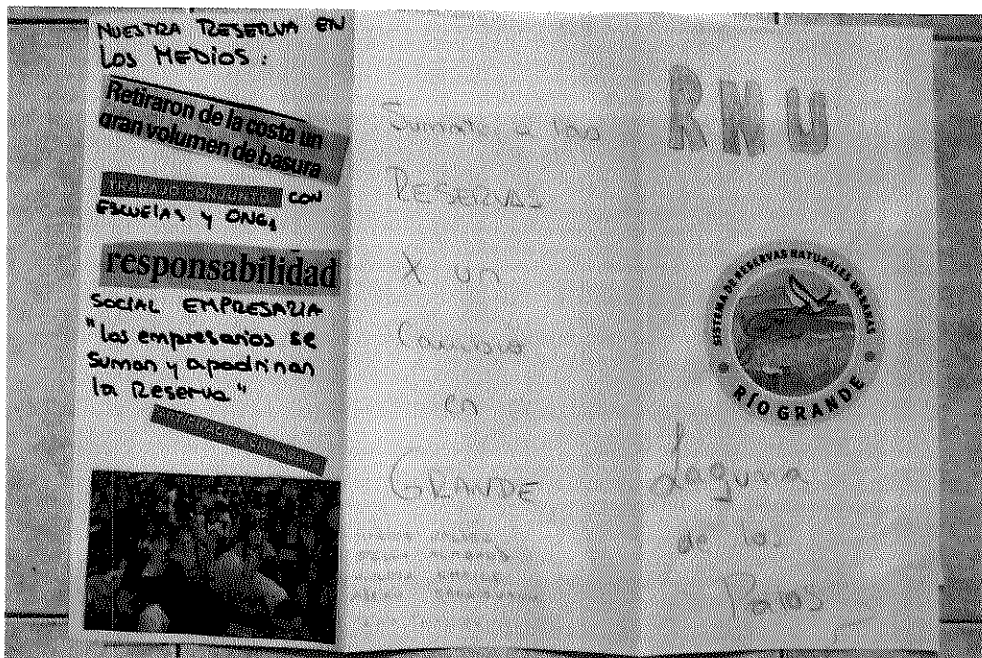 NUESTRA RESERVA EN
LOS MEDIOS:
Retiraron de la costa un
gran volumen de basura
TRABAJO CONJUNTO CON
ESCUELAS Y ONGs
responsabilidad
SOCIAL EMPRESARIA
"los empresarios se
suman y apadrinan
la Reserva"
Sumate a las
RESERVAS
X un
Cambio
en
GRANDE
RNU
SISTEMA DE RESERVAS NATURALES URBANAS
RÍO GRANDE
Laguna
de los